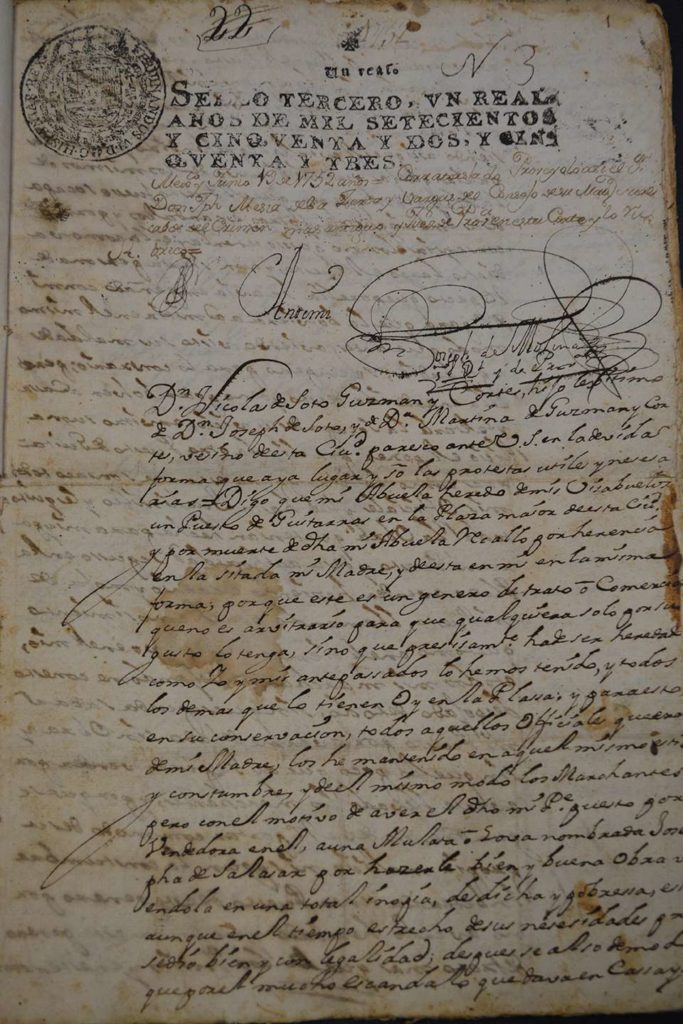 22
1752
1
Un real
N 3
SELLO TERCERO, VN REAL
AÑOS DE MIL SETECIENTOS
Y CINQVENTA Y DOS, Y CIN
QVENTA Y TRES.
Mexco y Junio 19 de 1752 años=
Don Jph Mesia de la Zerda y Vargas del Consejo de su Magd
en esta Corte y lo Ru
brico=
Ante mi
Joseph de Molina
Dn. Nicolas de Soto Guzman y Cortes, hijo lexitimo
de Dn. Joseph de Soto, y de Da. Martina de Guzman y Cor
tes, vesino de esta Ciud. paresco ante V.S. en la devida
forma que aya lugar y só las protestas utiles y nesesa
rias = Digo que mi Abuela heredo de mis Visabuelos
un Puesto de Guitarras en la Plaza maior de esta Ciud.
y por muerte de dha mi Abuela Recallo por herencia
en la sitada mi Madre, y de esta en mi en la misma
forma; porque este es un genero de trato ó Comercio
que no es arvitrario para que qualquiera solo por su
gusto lo tenga, sino que presisamte. ha de ser heredado
como Yo y mis antepassados lo hemos tenido, y todos
los demas que lo tienen Oy en la Plassa; y para esto
en su conservacion, todos aquellos Offisiales que eran
de mi Madre, los he mantenido en aquel mismo esti
y constumbre, y de el mismo modo los Marchantes
pero con el motivo de aver el dho mi Pe. puesto por
Vendedora en el, a una Mulata ó Lova nombrada Jose
pha de Salasar por hazerle bien y buena Obra v
endola en una total inopia, desdicha y pobressa, es
aunque en el tiempo estrecho de sus nesesidades pr
sedio bien y con legalidad; despues se also de mod
que por el mucho escandalo que dava en Cassa y